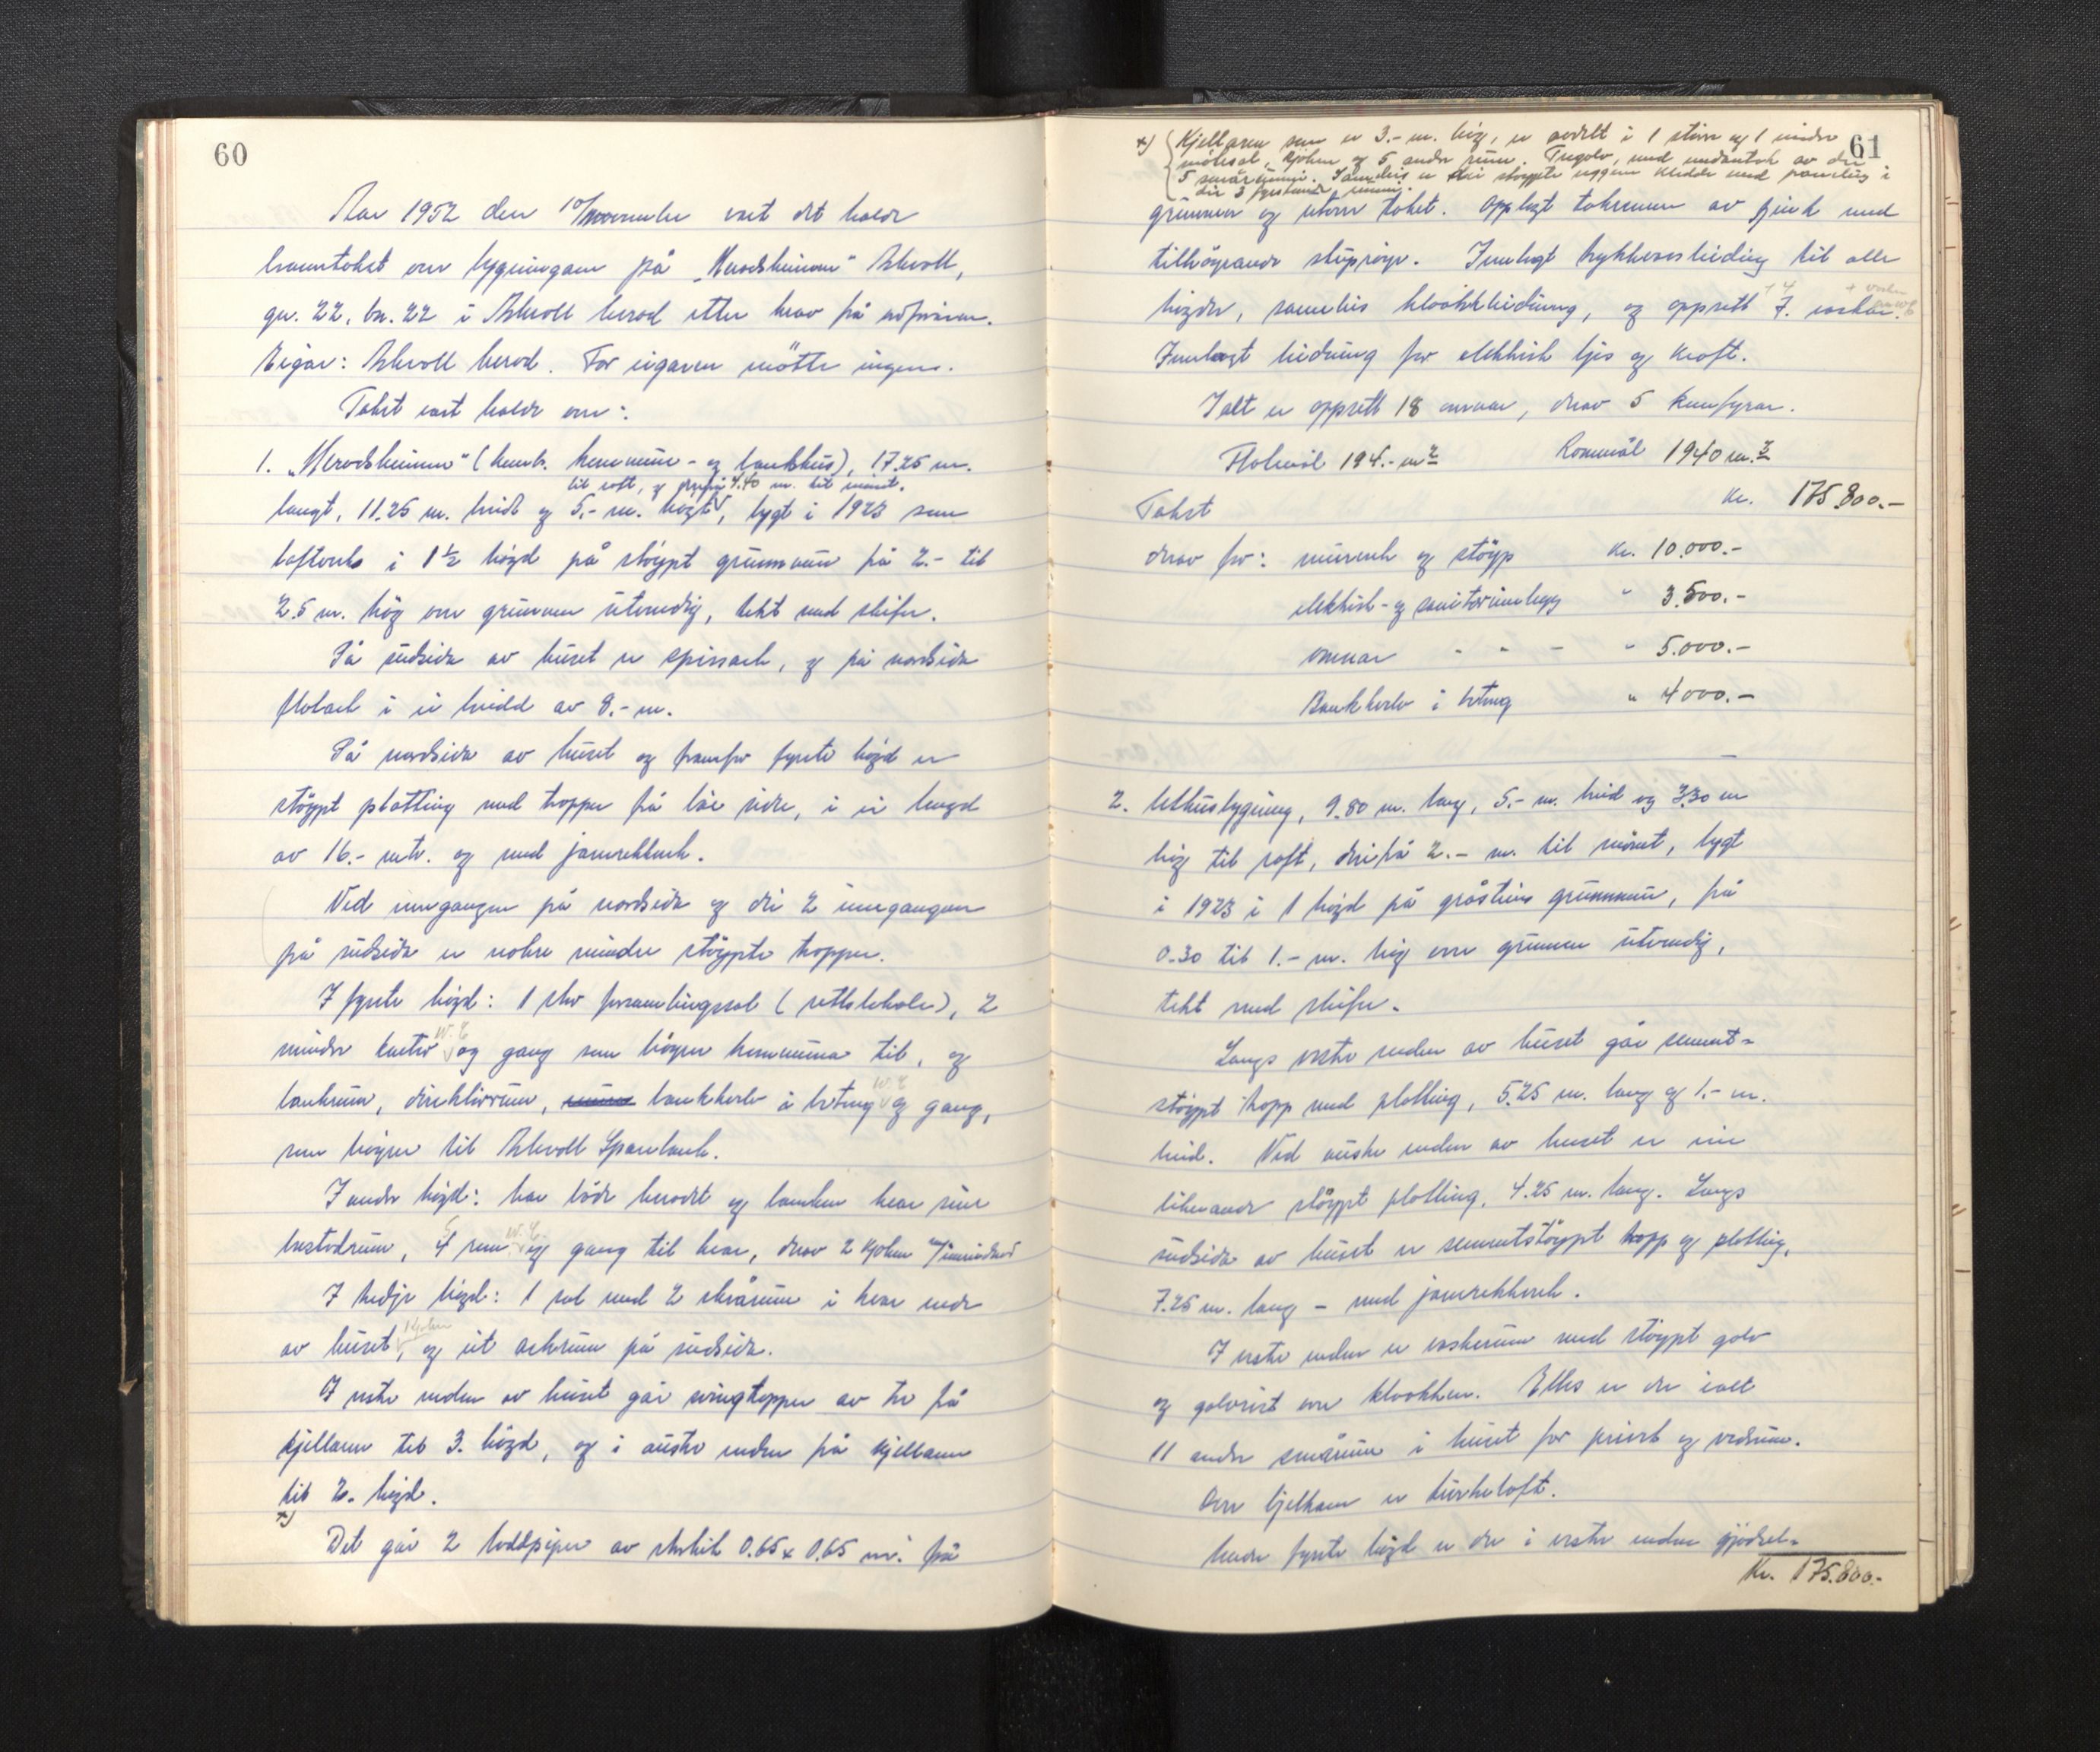 60
Aar 1952 den 10/november vart det halde
branntakst over bygningane på „Heradsheimen" Askvoll,
gn. 22, bn. 22 i Askvoll herad etter krav frå
Eigar: Askvoll herad. For eigaren møtte ingen.
Takst vart halde over:
1. „Heradsheimen" (komb. kommune- og bankhus), 17.25 m.
til raft, og derfrå 4.40 m. til mønet.
langt, 11.25 m. breidt og 5.- m. høgt, bygt i 1923 som
i 1½ høgd på støypt grunnmur frå 2.- til
2.5 m. høg over grunnen utvendig, tekt med skifer.
På sudsida av huset er spissark, og på nordsida
flatark i ei breidd av 8.- m.
På nordsida av huset og framfor fyrste høgd er
støypt platting med trapper frå båe sider, i ei lengd
av 16.- mtr. og med jarnrekkverk.
Ved inngangen på nordsida og dei 2 inngangar
på sudsida er nokre mindre støypte trapper.
I fyrste høgd: 1 stor forsamlingssal (rettslokale), 2
W.C.
mindre kontor og gang som høyrer kommunen til, og
W.C.
bankrum, direktørrum, bankkvelv i betong og gang,
som høyrer til Askvoll Sparebank.
I andre høgd: har både heradet og banken kvar sine
W.C.
bustadrum, 4 rum og gang til kvar, derav 2 kjøken
I tredje høgd: 1 sal med 2 skrårum i kvar ende
Kjøken
av huset, og eit arkrum på sudsida.
I vestre enden av huset går svingtrapper av tre frå
kjellaren til 3. høgd, og i austre enden frå kjellaren
til 2. høgd.
x)
Det går 2 loddpiper av storleik 0.65 x 0.65 m. frå
61
x) Kjellaren som er 3.- m. høg, er avdelt i 1 større og 1 mindre
møtesal, kjøken og 5 andre rum. Tregolv, med undantak av dei
5 smårumi. Sameleis er dei støypte veggene kledde med paneling i
dei 3 fyrstnemnde rummi.
grunnen og utover taket. Opplagt takrenner av sink med
tilhøyrande støyprøyr. Innlagt trykkvassleiding til alle
+4 + vaskar
høgder, sameleis kloakkleidning, og oppsett 7. vaskar.
Innlagt leidning for elektrisk ljos og kraft.
Ialt er oppsett 18 omnar, derav 5 komfyrar.
Flatemål 194.- m2 Rommål 1940 m.3
Takst Kr. 175.800.-
derav for: murverk og støyp Kr. 10.000.-
elektrisk- og sanitæranlegg " 3.500.-
omnar - - - " 5.000.-
Bankkvelv i betong " 4000.-
2. Uthusbygning, 9.80 m. lang, 5.- m. breid og 3.30 m
høg til raft, derifrå 2.- m. til mønet, bygt
i 1923 i 1 høgd på gråsteins grunnmur, frå
0.30 til 1.- m. høg over grunnen utvendig,
tekt med skifer.
Langs vestre enden av huset går sement-
støypt trapp med platting, 5.25 m. lang og 1.- m.
breid. Ved austre enden av huset er ein
liknande støypt platting, 4.25 m. lang. Langs
sudsida av huset er sementstøypt trapp og platting,
7.25 m. lang - med jarnrekkverk.
I vestre enden er vaskerum med støypt golv
og golvrist over kloakken. Elles er der ialt
11 andre smårum i huset for privet og vedrum.
Over bjelkane er turkeloft.
Under fyrste høgd er der i vestre enden gjødsel-
Kr. 175.800.-